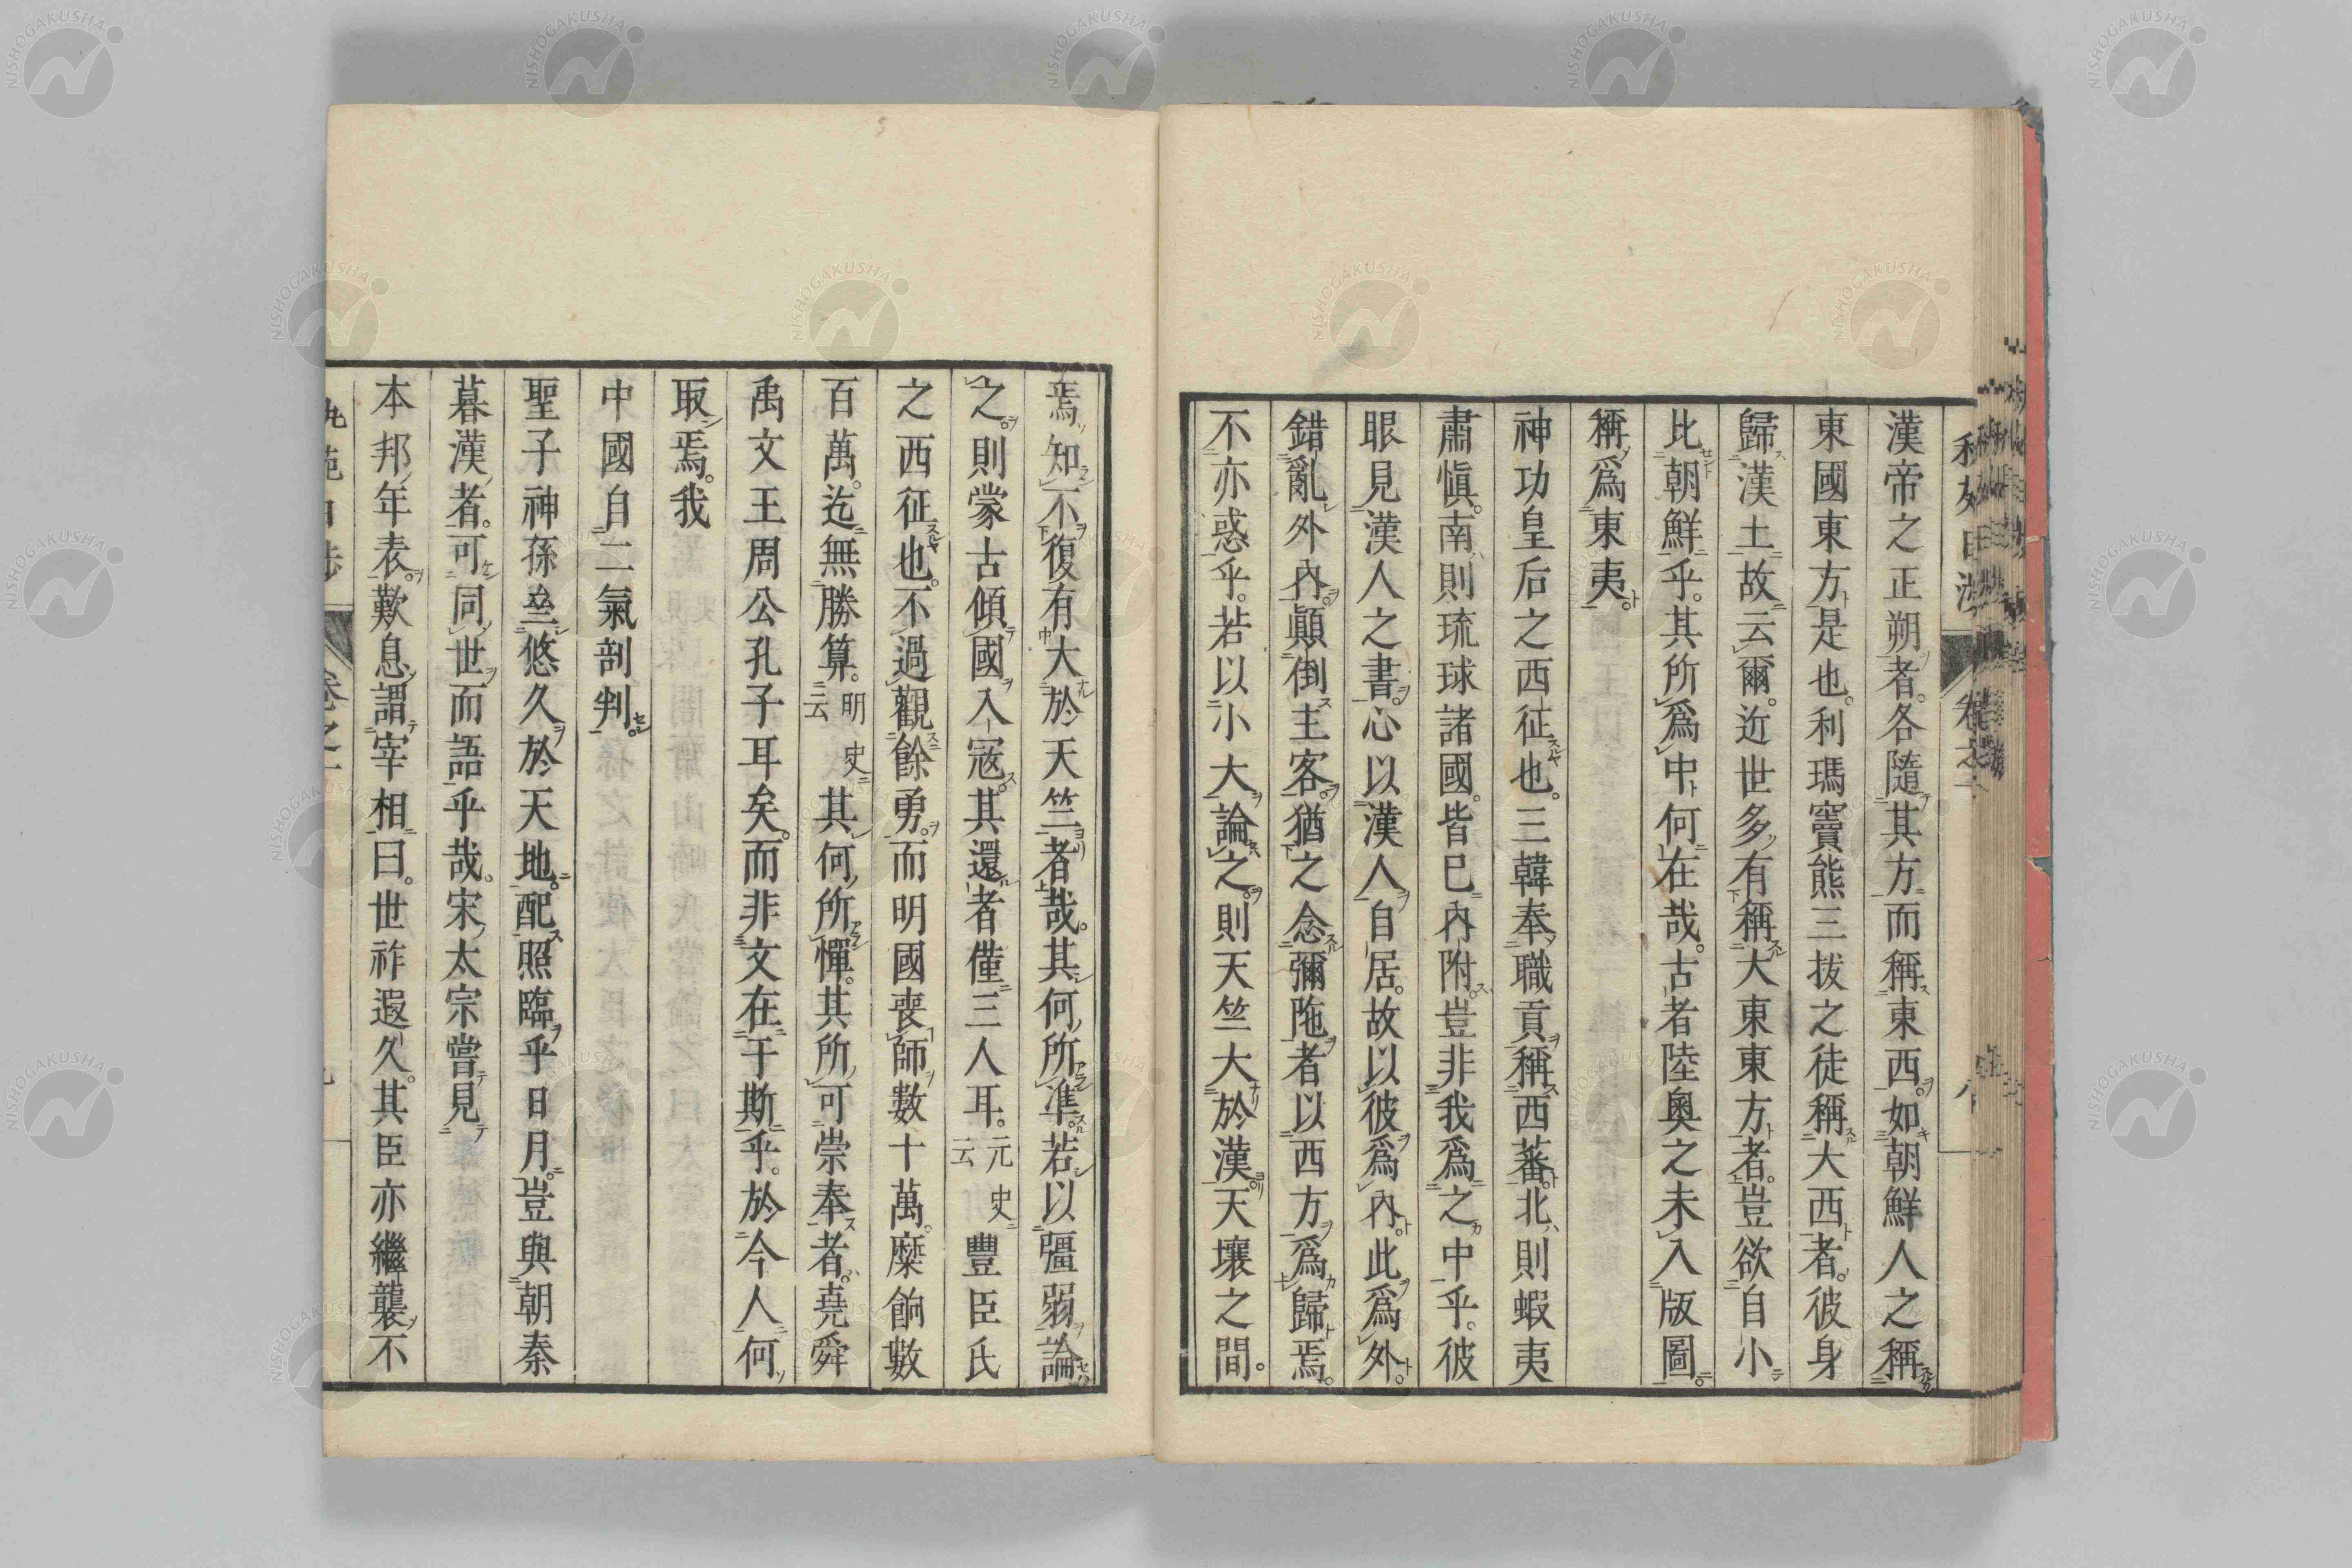 漢帝之正朔者。各隨其方而稱東西。如朝鮮人之稱
東國東方是也。利瑪竇熊三拔之徒稱大西者。彼身
歸漢土故云爾。近世多有稱大東東方者。豈欲自小
比朝鮮乎。其所爲中何在哉。古者陸奧之未入版圖。
稱爲東夷。
神功皇后之西征也。三韓奉職貢稱西蕃。北則蝦夷
肅愼。南則琉球諸國。皆已內附。豈非我爲之中乎。彼
眼見漢人之書。心以漢人自居。故以彼爲內。此爲外。
錯亂外內。顚倒主客。猶之念彌陁者以西方爲歸焉。
不亦惑乎。若以小大論之。則天竺大於漢。天壤之間。
焉知不復有大於天竺者哉。其何所準。若以彊弱論
之。則蒙古傾國入寇。其還者僅三人耳。元史云豐臣氏
之西征也。不過觀餘勇。而明國喪師數十萬。糜餉數
百萬。迄無勝算。明史云其何所憚。其所可崇奉者。堯舜
禹文王周公孔子耳矣。而非文在于斯乎。於今人何
取焉。我
中國自二氣剖判。
聖子神孫亝悠久於天地。配照臨乎日月。豈與朝秦
暮漢者。可同世而語乎哉。宋太宗嘗見
本邦年表。歎息謂宰相曰。世祚遐久。其臣亦繼襲不
卷之一
NISHOGAKUSHA